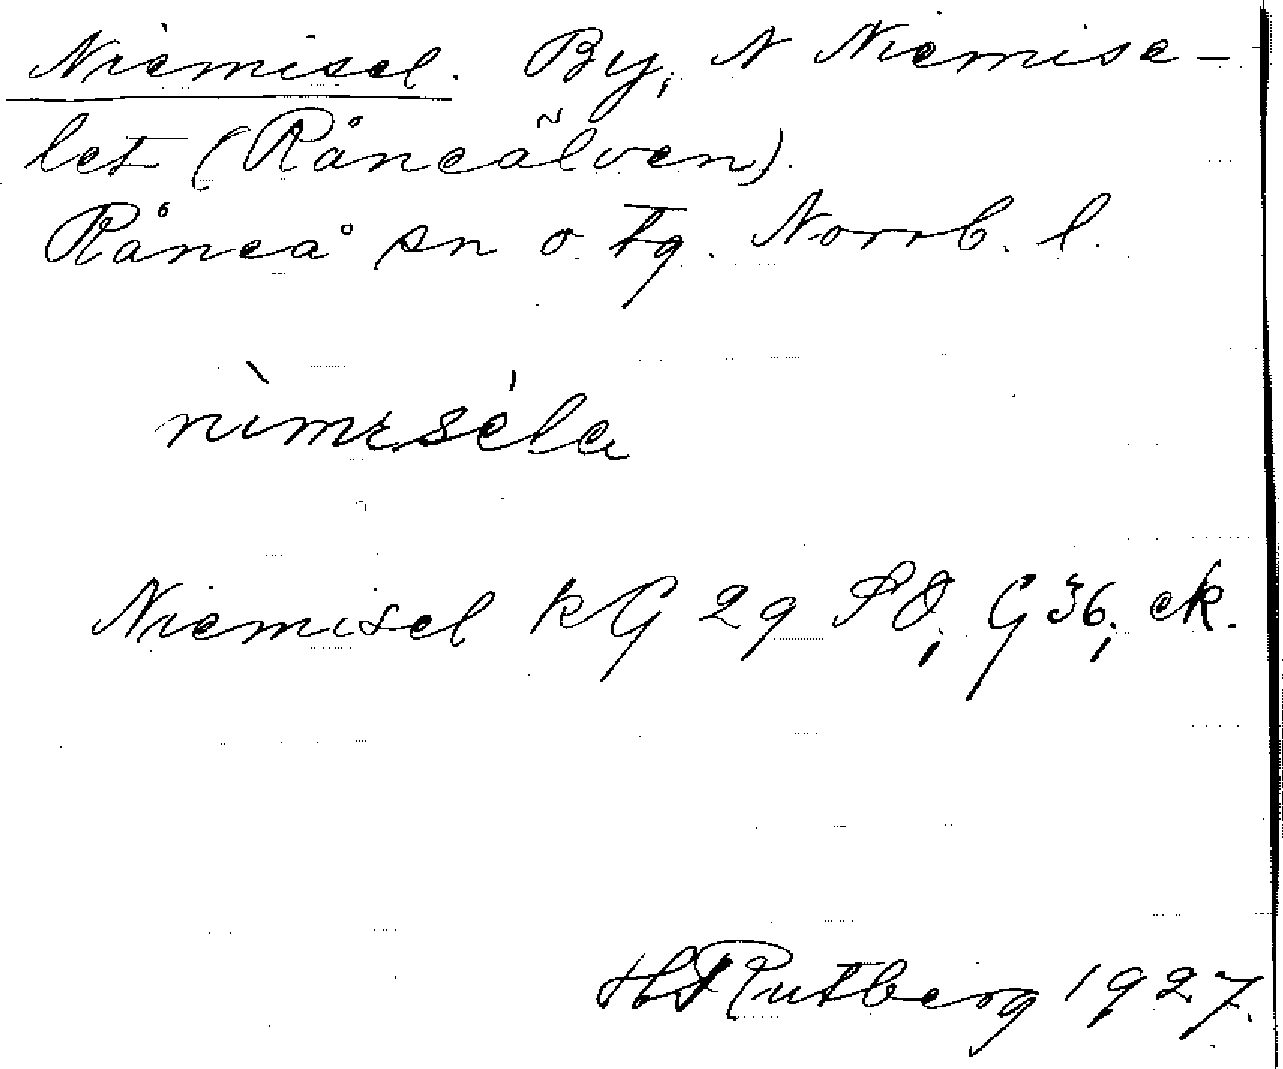 Niemisel. By, N Niemise-
let (Råneälven).
Råneå sn o tg. Norrb. l.
nìmɪséla
Niemisel kG 29 SO, G 36; ek.
H Rutberg 1927.